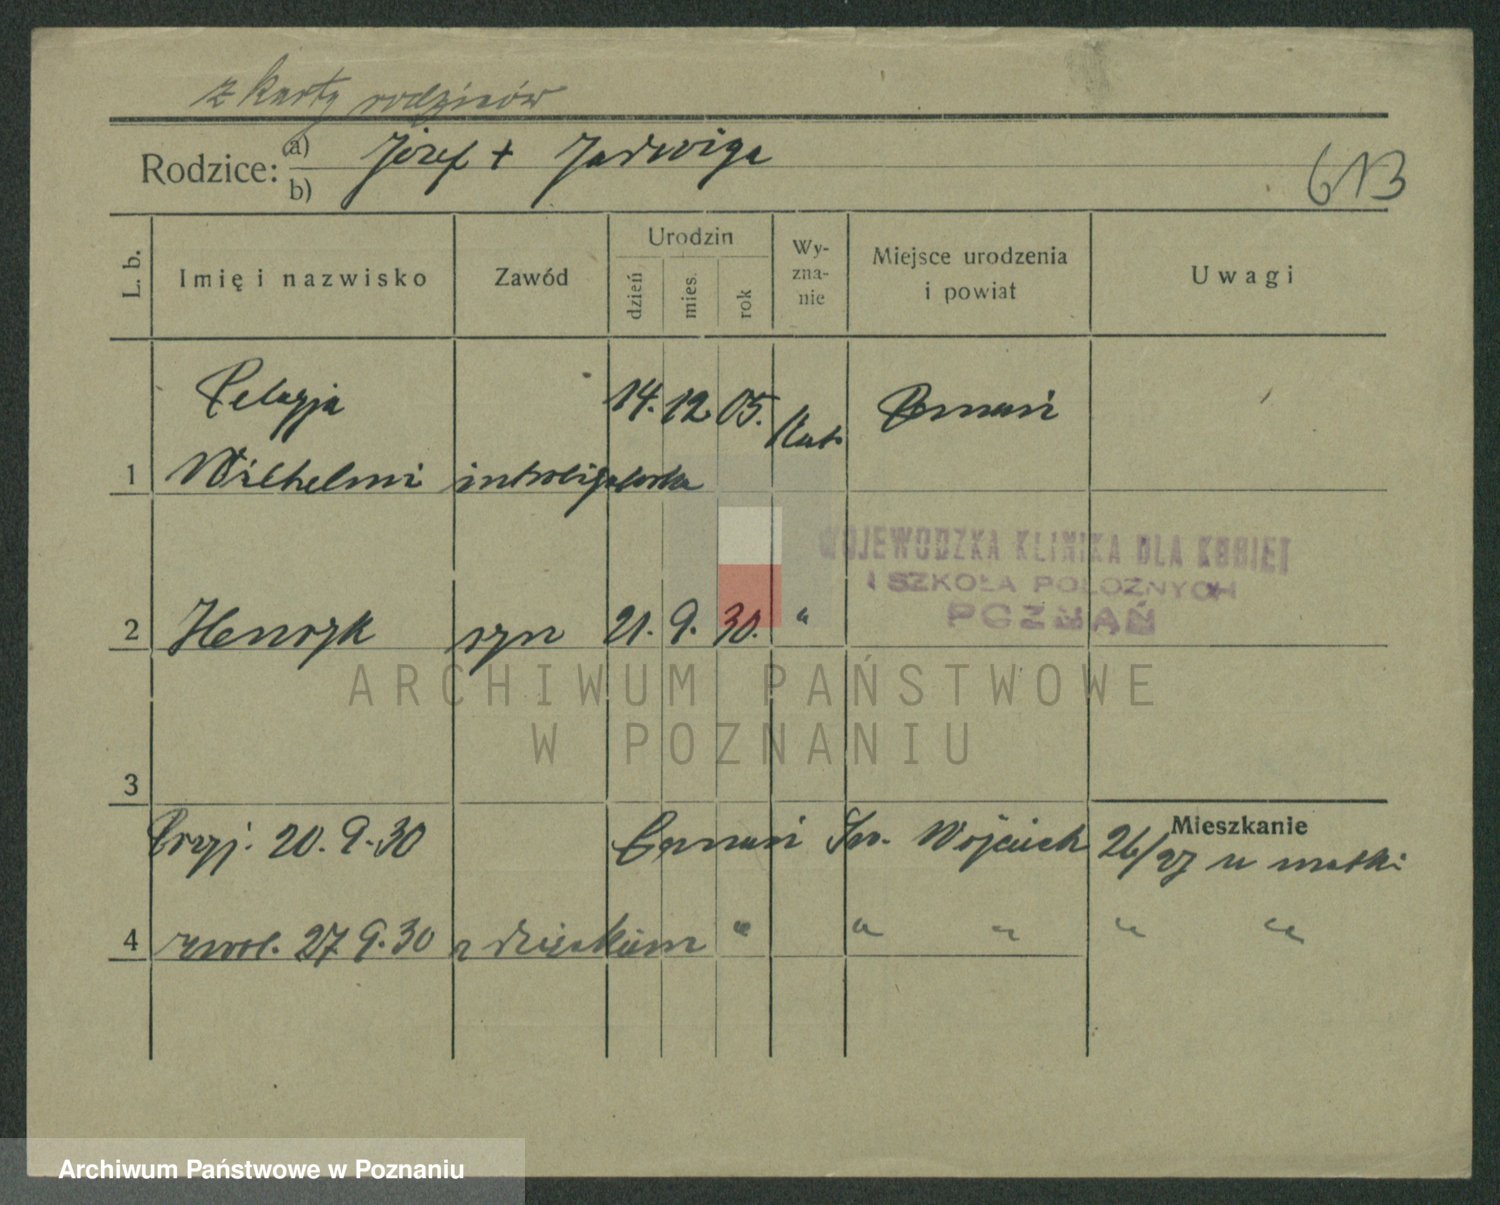 z karty rodziców
Rodzice: a) Józef + Jadwiga
b)
613
L. b. Imię i nazwisko Zawód Urodzin dzień mies. rok Wy-zna-nie Miejsce urodzenia i powiat Uwagi
Pelagja 14. 12. 05. Kat. Poznań
1 Wilhelmi introligatorka
WOJEWODZKA KLINIKA DLA KOBIET
I SZKOŁA POŁOZNYCH
POZNAŃ
2 Henryk syn 21. 9. 30. "
ARCHIWUM PAŃSTWOWE
W POZNANIU
3
Mieszkanie
Przyj. 20. 9. 30 Poznań Św. Wojciech 26/27 u matki
4 zwol. 27 9. 30 z dzieckiem " " " " "
Archiwum Państwowe w Poznaniu